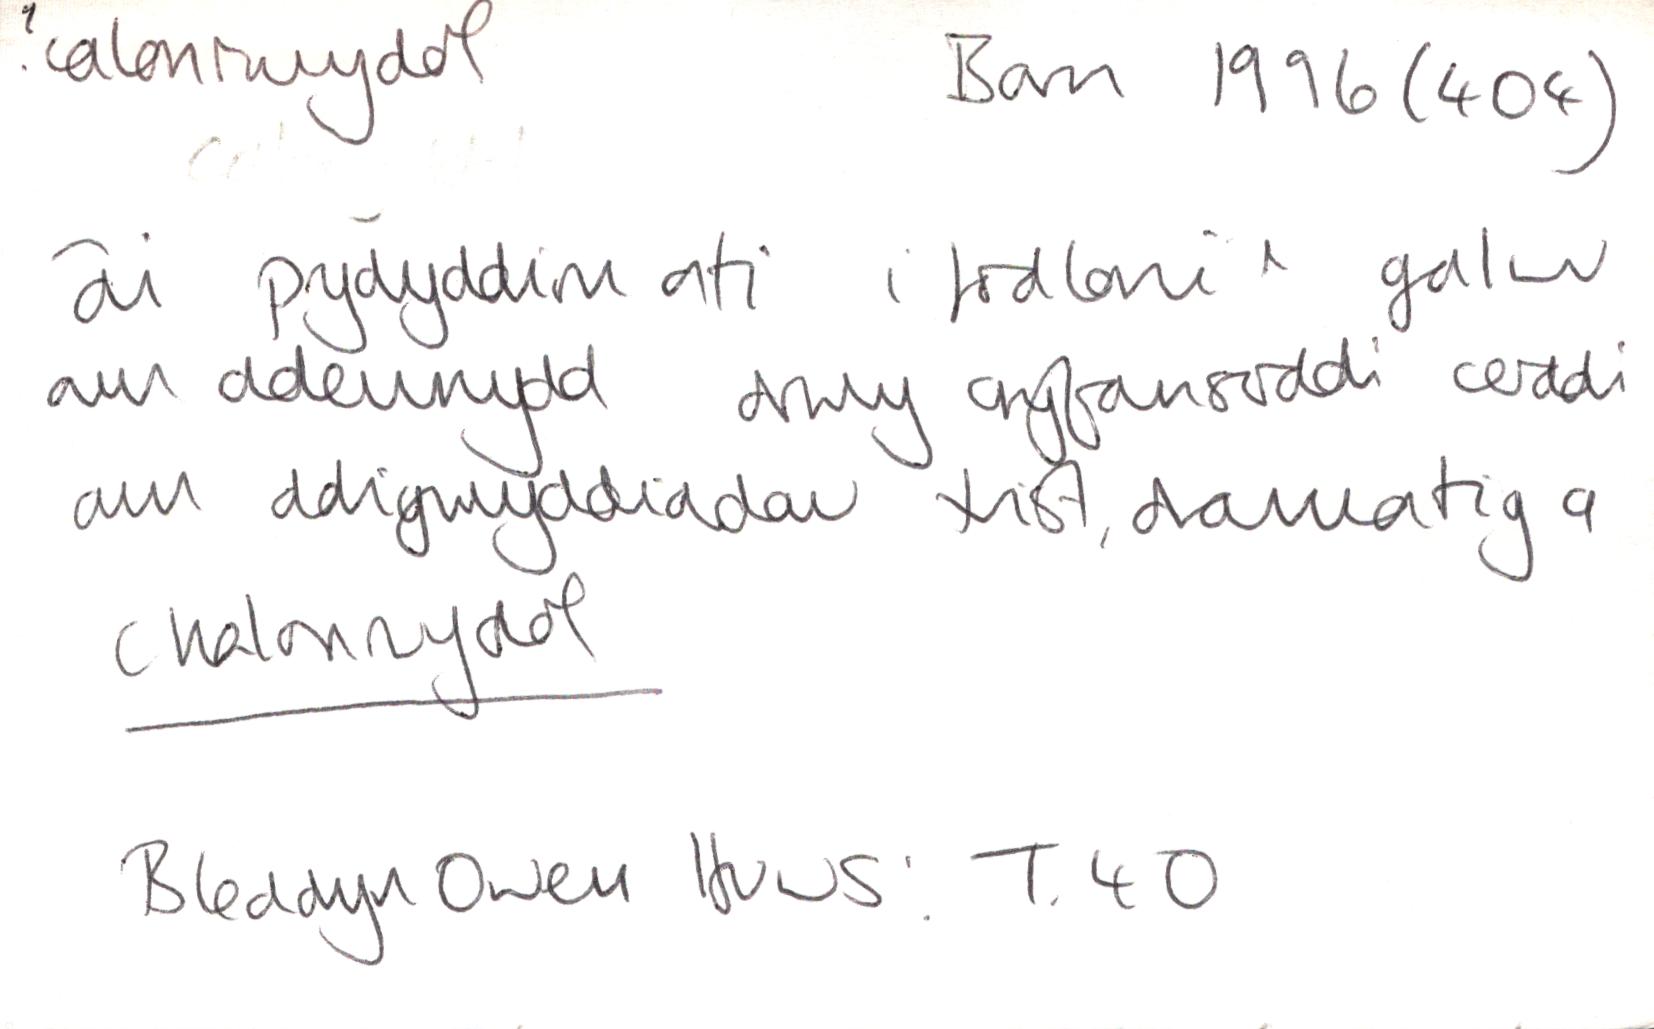 ?calonrwydol Barn 1996 (404)
âi prydyddion ati i fodloni'r galw
am ddeunydd drwy gyfansoddi cerddi
am ddigwyddiadau trist, dramatig a
chalonrwydol
Bleddyn Owen Huws: T. 40